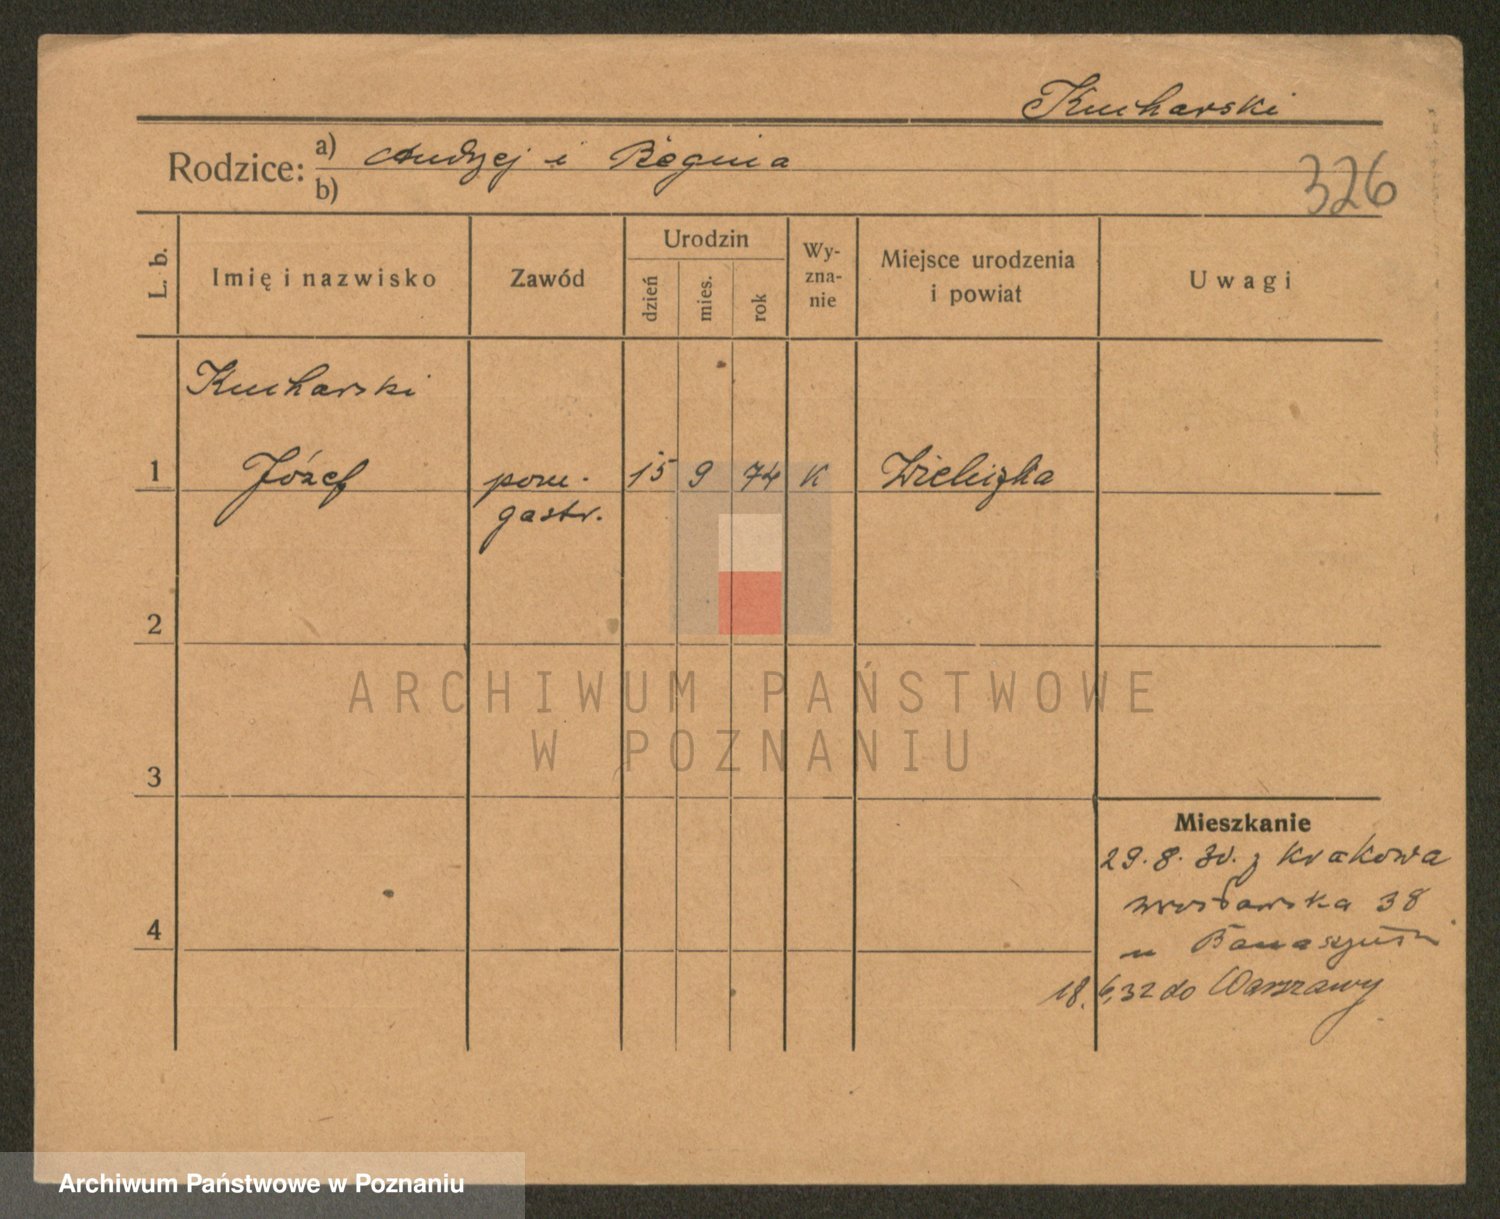 Kucharski
Rodzice: a) Andrzej i Regina
b)
326
L. b.
Imię i nazwisko
Zawód
Urodzin
dzień
mies.
rok
Wy-
zna-
nie
Miejsce urodzenia
i powiat
Uwagi
Kucharski
1 Józef pom. 15 9 74 K Wieliczka
gastr.
2
3
4
Mieszkanie
29.8.30. z Krakowa
Wrocławska 38
u
18.6.32 do Warszawy
ARCHIWUM PAŃSTWOWE
W POZNANIU
Archiwum Państwowe w Poznaniu